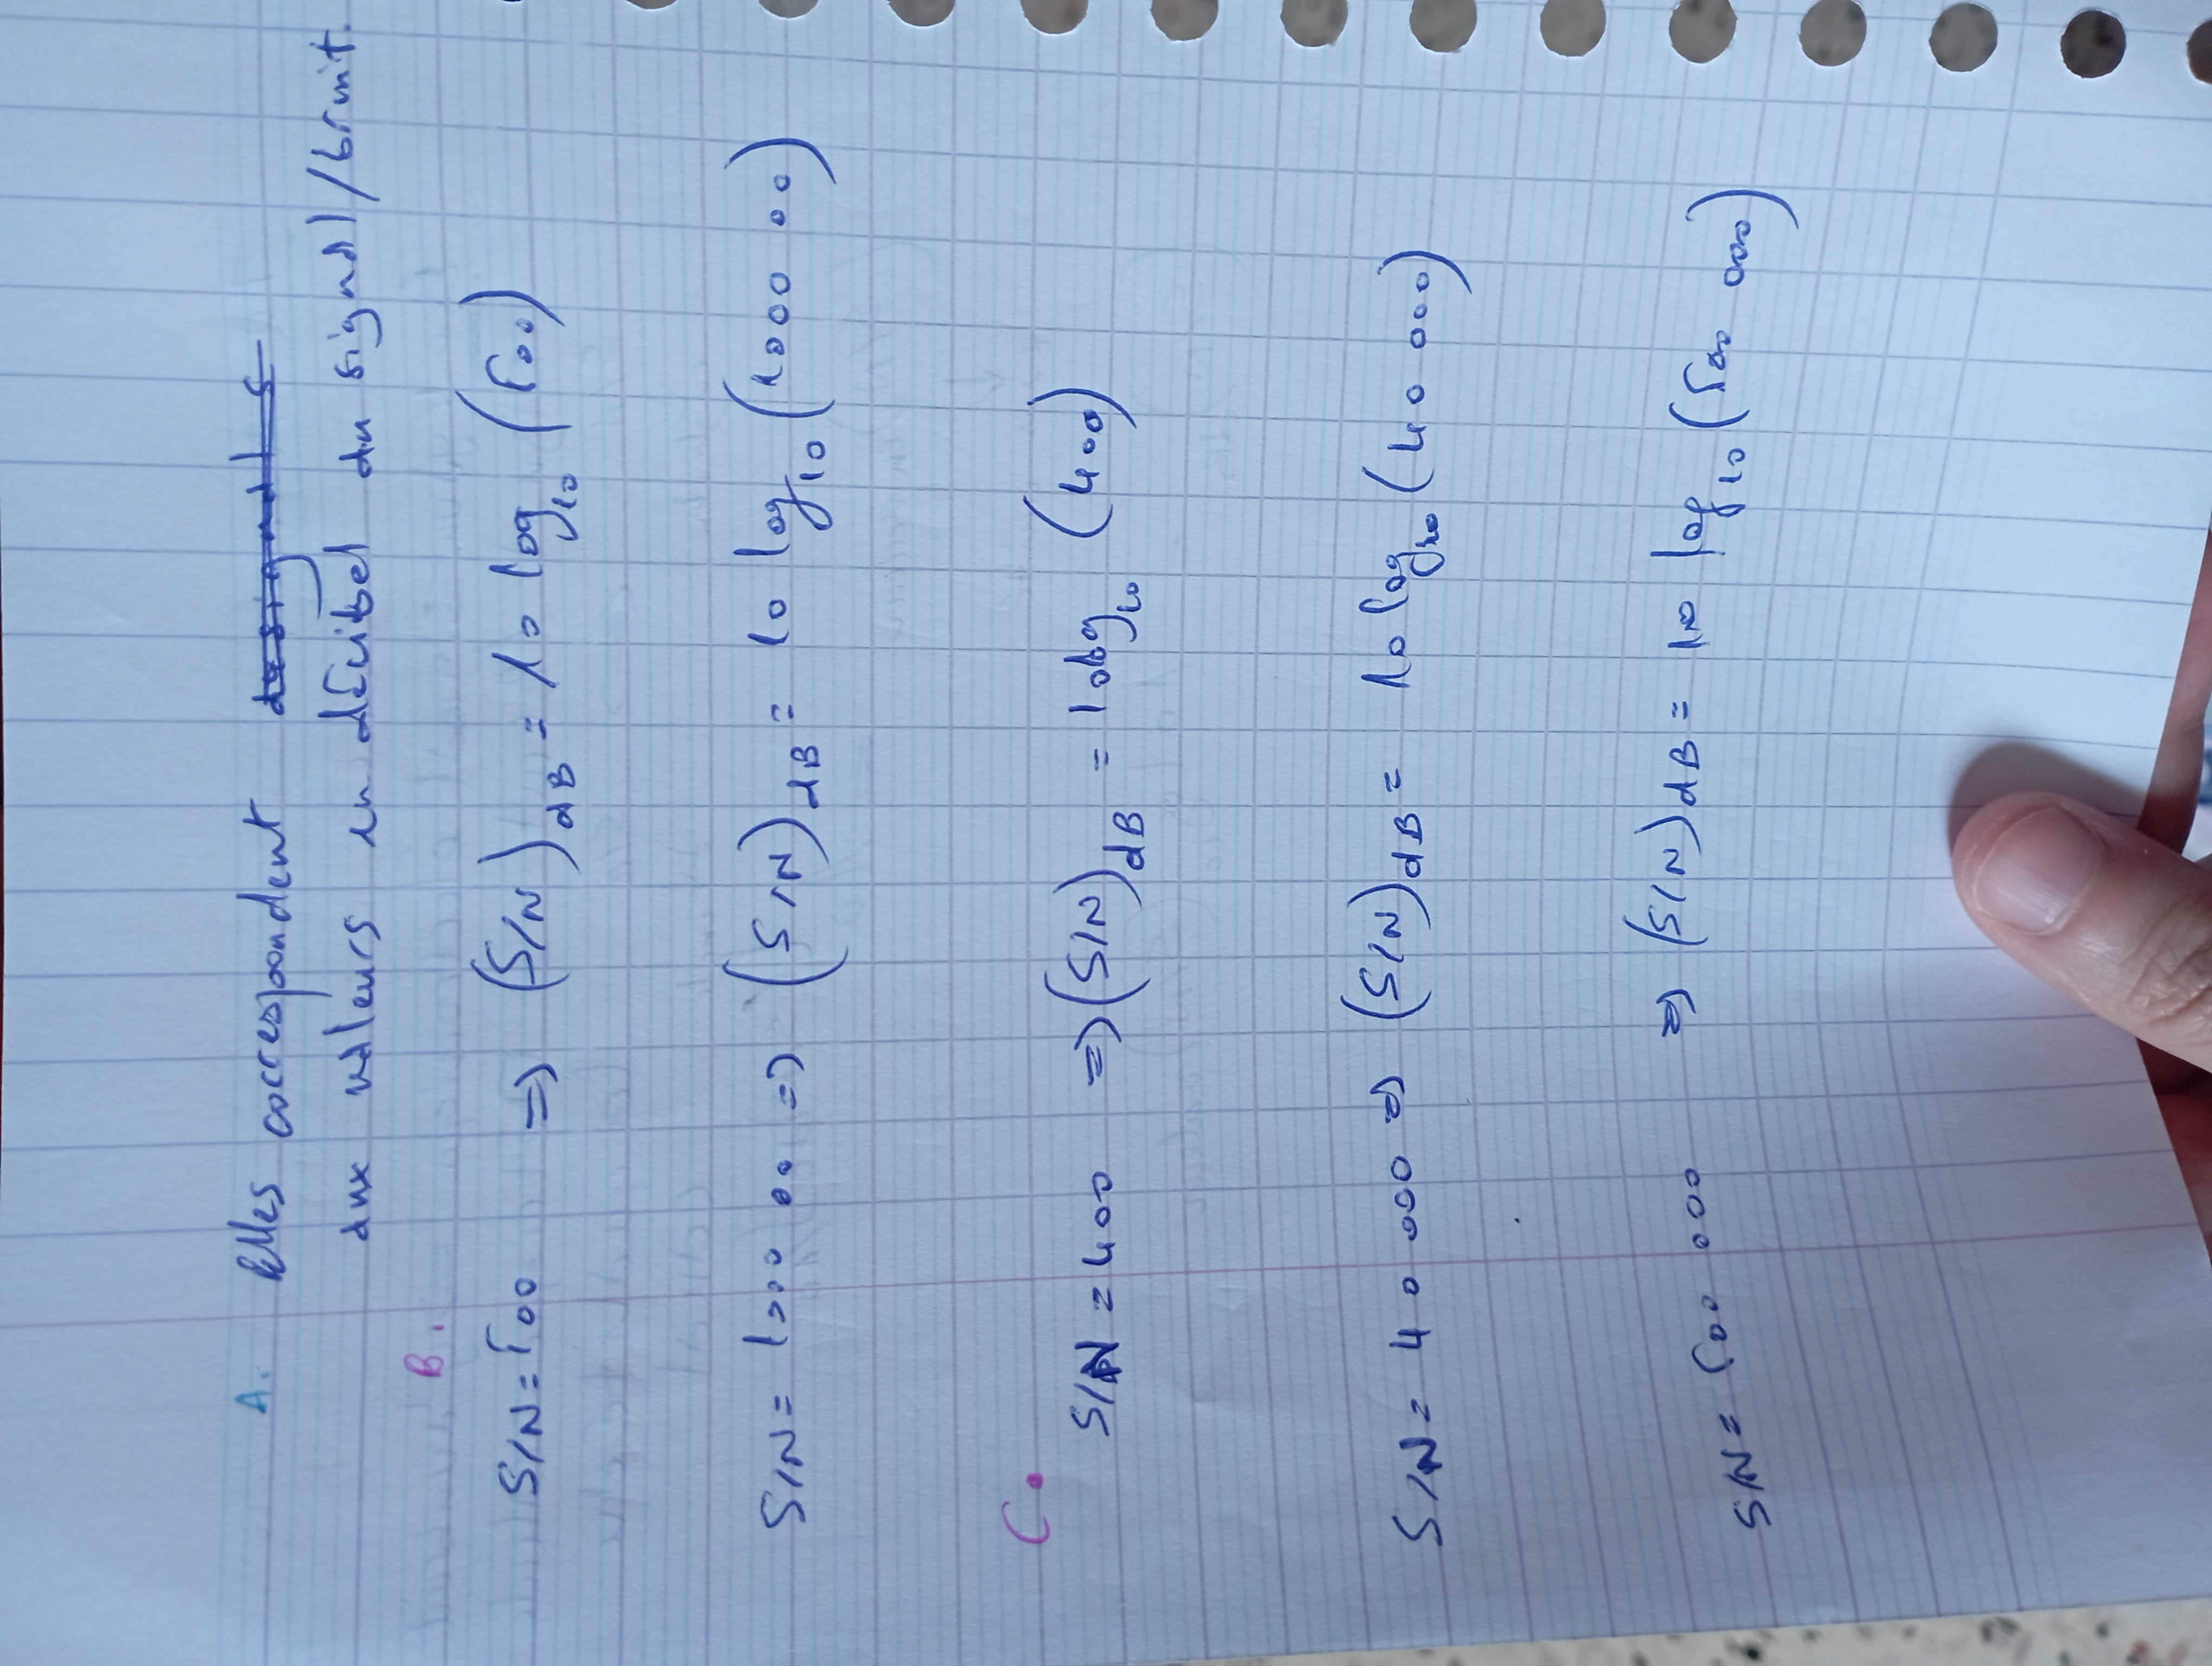 A. Elles correspondent
aux valeurs en décibel du signal/bruit.
B.
S/N = 500 => (S/N)dB = 10 log10 (500)
S/N = 1000 00 => (S/N)dB = 10 log10 (1000 00)
C.
S/N = 400 => (S/N)dB = 10 log10 (400)
S/N = 40 000 => (S/N)dB = 10 log10 (40 000)
S/N = 500 000 => (S/N)dB = 10 log10 (500 000)